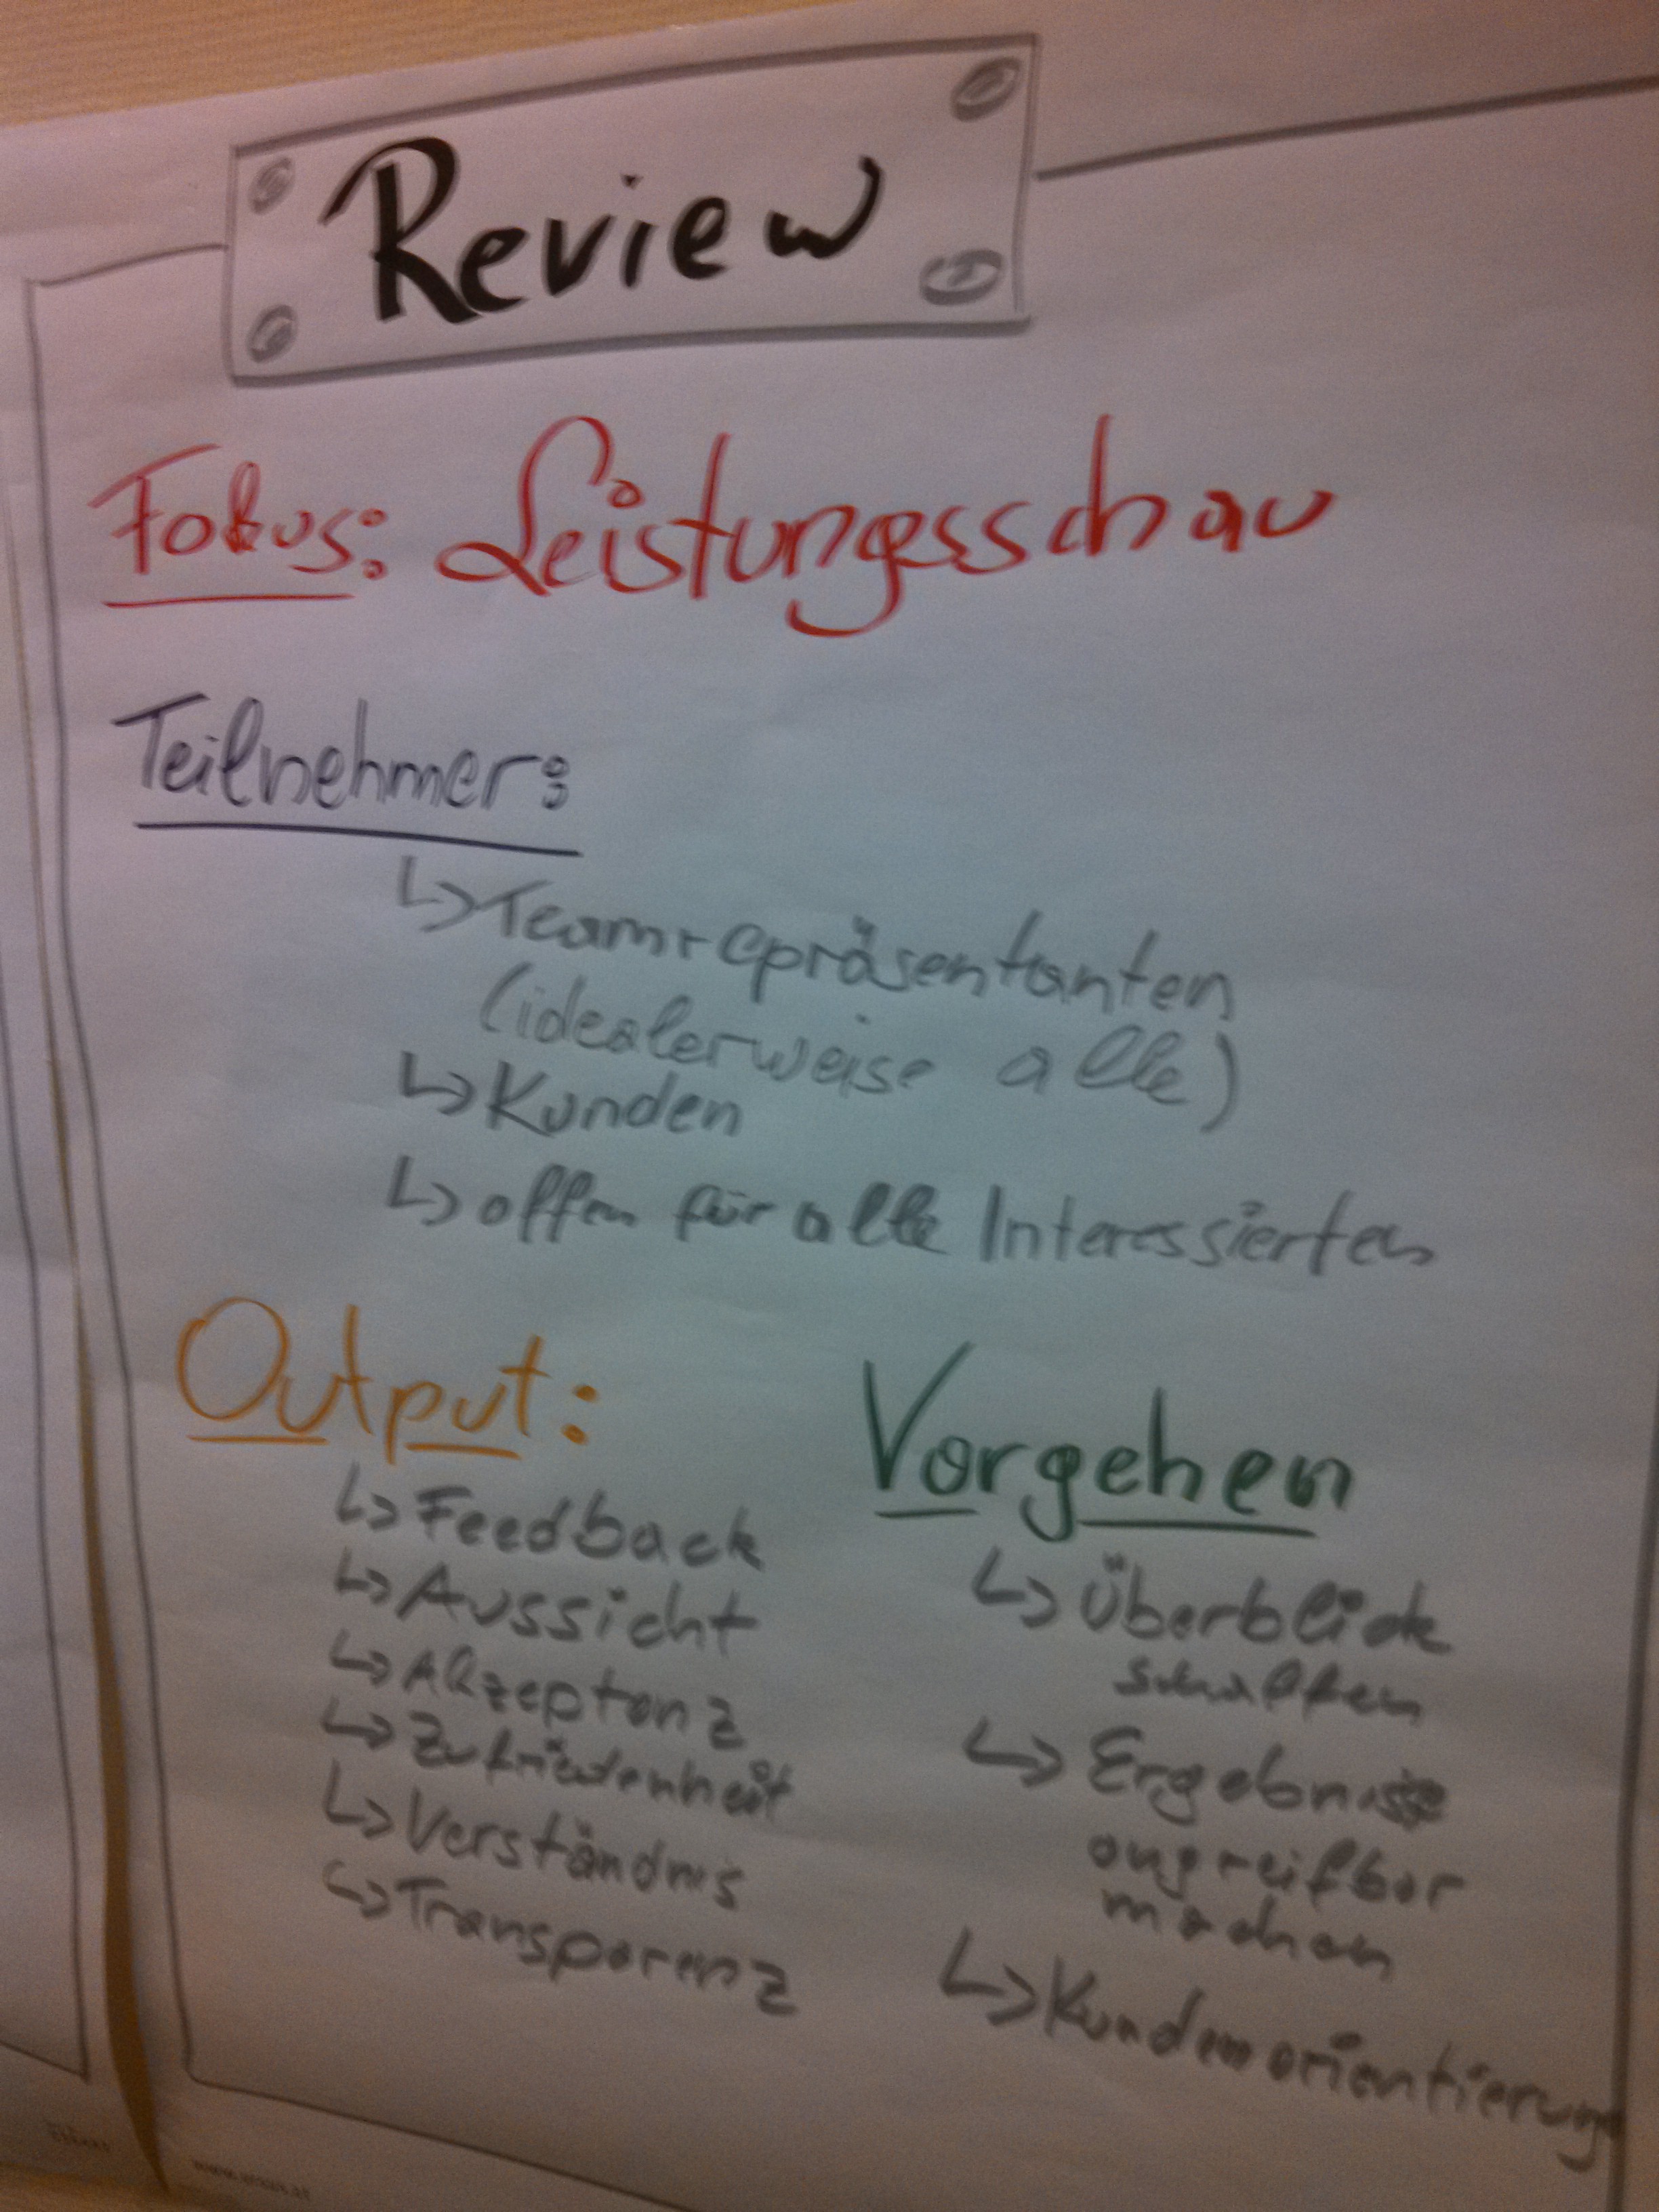 Review
Fokus: Leistungsschau
Teilnehmer:
↳ Teamrepräsentanten
(idealerweise alle)
↳ Kunden
↳ offen für alle Interessierten
Output:
↳ Feedback
↳ Aussicht
↳ Akzeptanz
↳ Zufriedenheit
↳ Verständnis
↳ Transparenz
Vorgehen
↳ Überblick
schaffen
↳ Ergebnisse
angreifbar
machen
↳ Kundenorientierung